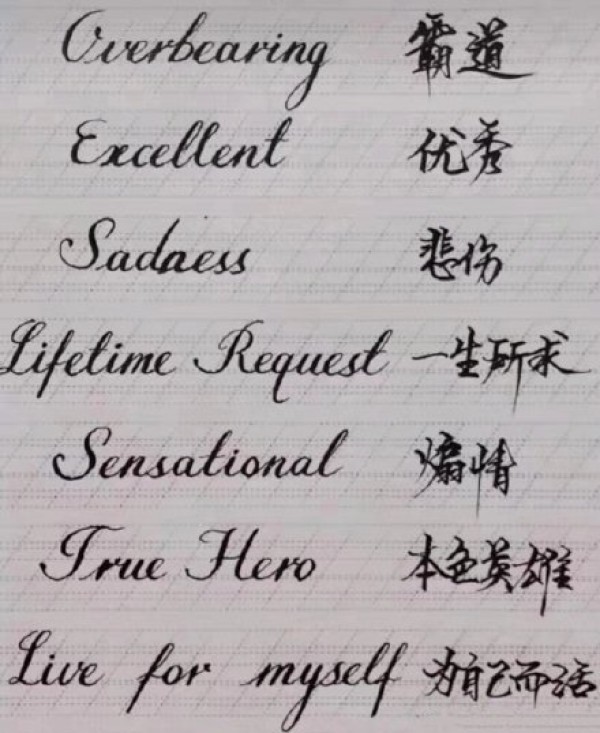 Overbearing 霸道
Excellent 优秀
Sadness 悲伤
Lifetime Request 一生所求
Sensational 煽情
True Hero 本色英雄
Live for myself 为自己而活